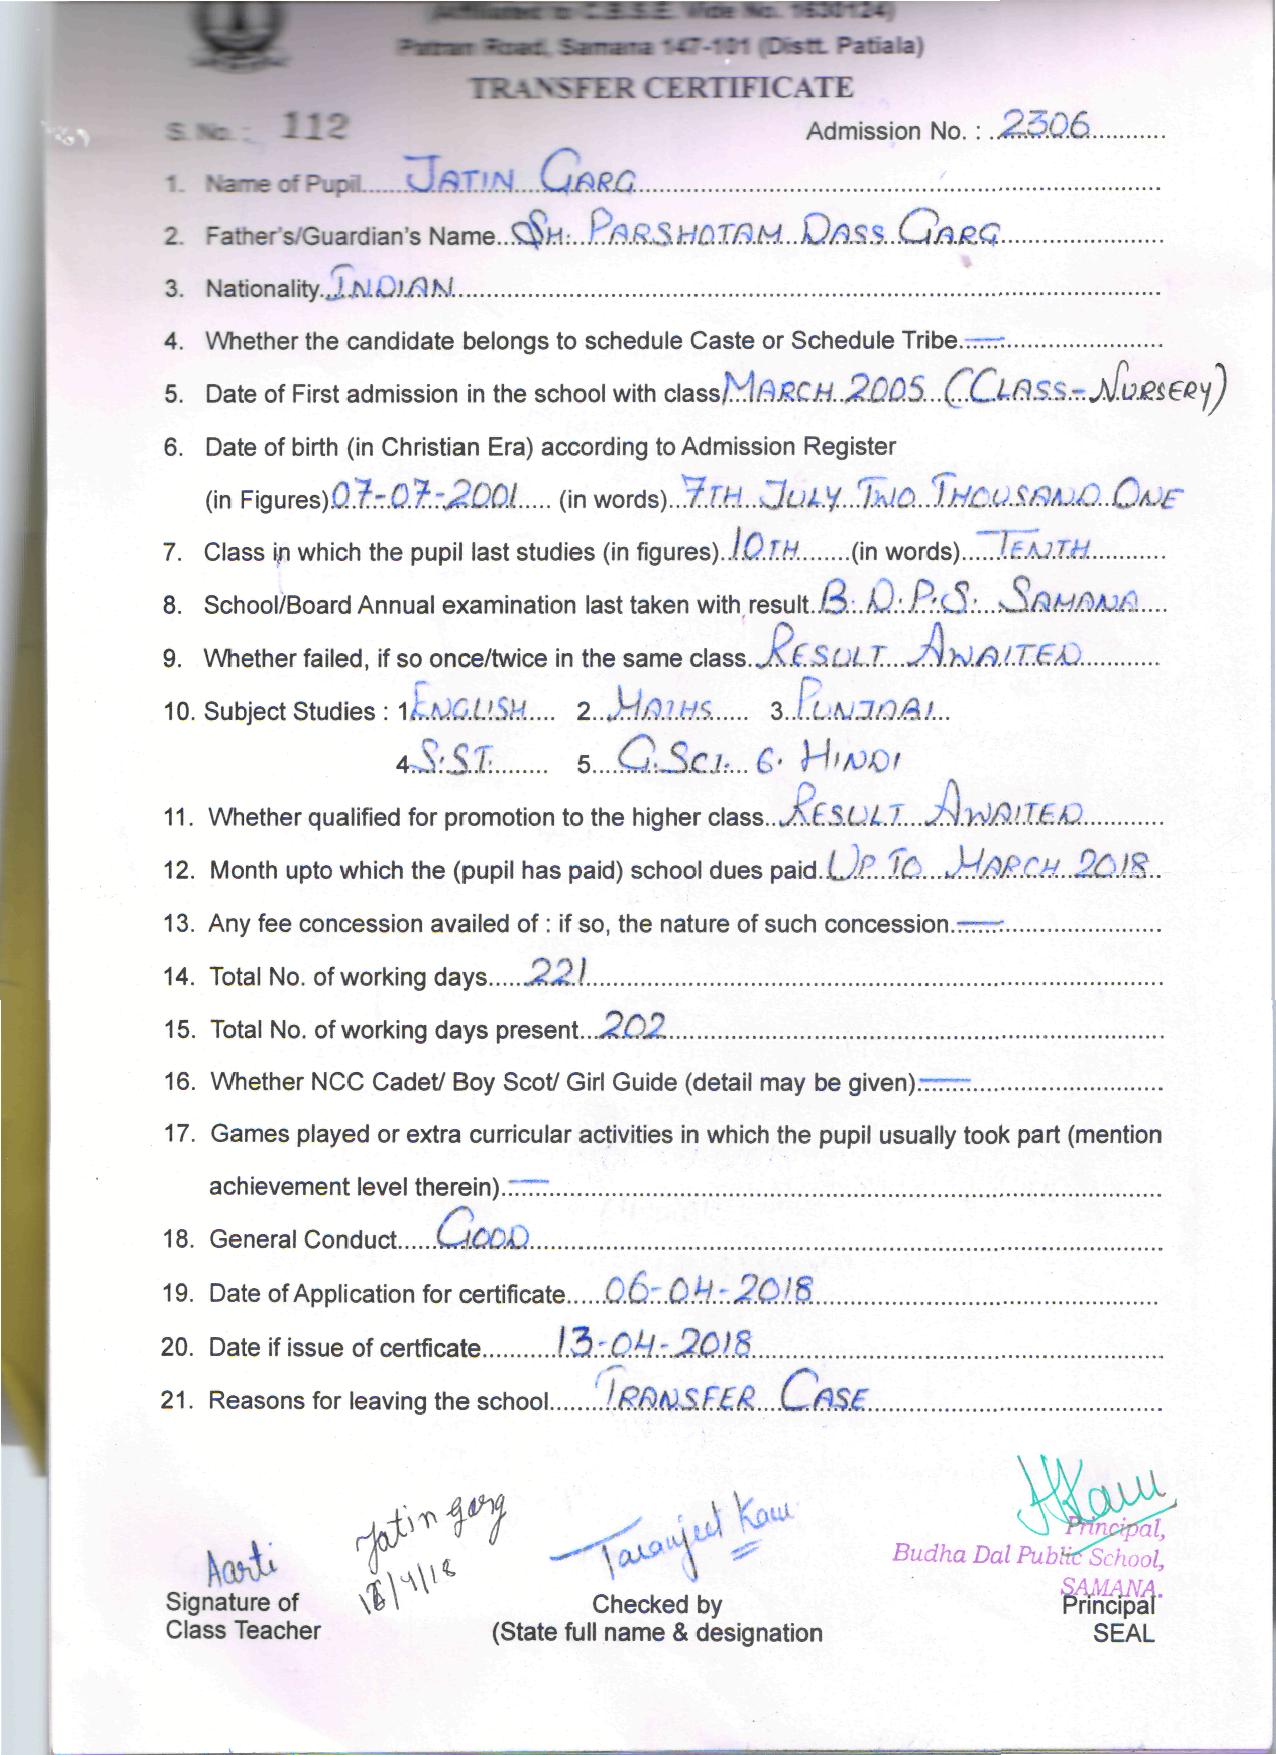 (Affiliated to C.B.S.E. Vide No. 1630124)
Patran Road, Samana 147-101 (Distt. Patiala)
TRANSFER CERTIFICATE
S. No. : 112 Admission No. : 2306
1. Name of Pupil JATIN GARG
2. Father's/Guardian's Name SH. PARSHOTAM DASS GARG
3. Nationality INDIAN
4. Whether the candidate belongs to schedule Caste or Schedule Tribe —
5. Date of First admission in the school with class MARCH 2005 (CLASS-NURSERY)
6. Date of birth (in Christian Era) according to Admission Register
(in Figures) 07-07-2001 (in words) 7TH JULY TWO THOUSAND ONE
7. Class in which the pupil last studies (in figures) 10TH (in words) TENTH
8. School/Board Annual examination last taken with result B.D.P.S. SAMANA
9. Whether failed, if so once/twice in the same class RESULT AWAITED
10. Subject Studies : 1 ENGLISH 2. MATHS 3. PUNJABI
4. S.ST. 5. G.SCI. 6. HINDI
11. Whether qualified for promotion to the higher class RESULT AWAITED
12. Month upto which the (pupil has paid) school dues paid UP TO MARCH 2018
13. Any fee concession availed of : if so, the nature of such concession —
14. Total No. of working days 221
15. Total No. of working days present 202
16. Whether NCC Cadet/ Boy Scot/ Girl Guide (detail may be given) —
17. Games played or extra curricular activities in which the pupil usually took part (mention
achievement level therein) —
18. General Conduct GOOD
19. Date of Application for certificate 06-04-2018
20. Date if issue of certficate 13-04-2018
21. Reasons for leaving the school TRANSFER CASE
Jatin garg
Taranjeet Kaur
Principal,
Budha Dal Public School,
SAMANA.
Aarti
Signature of Checked by Principal
Class Teacher (State full name & designation SEAL